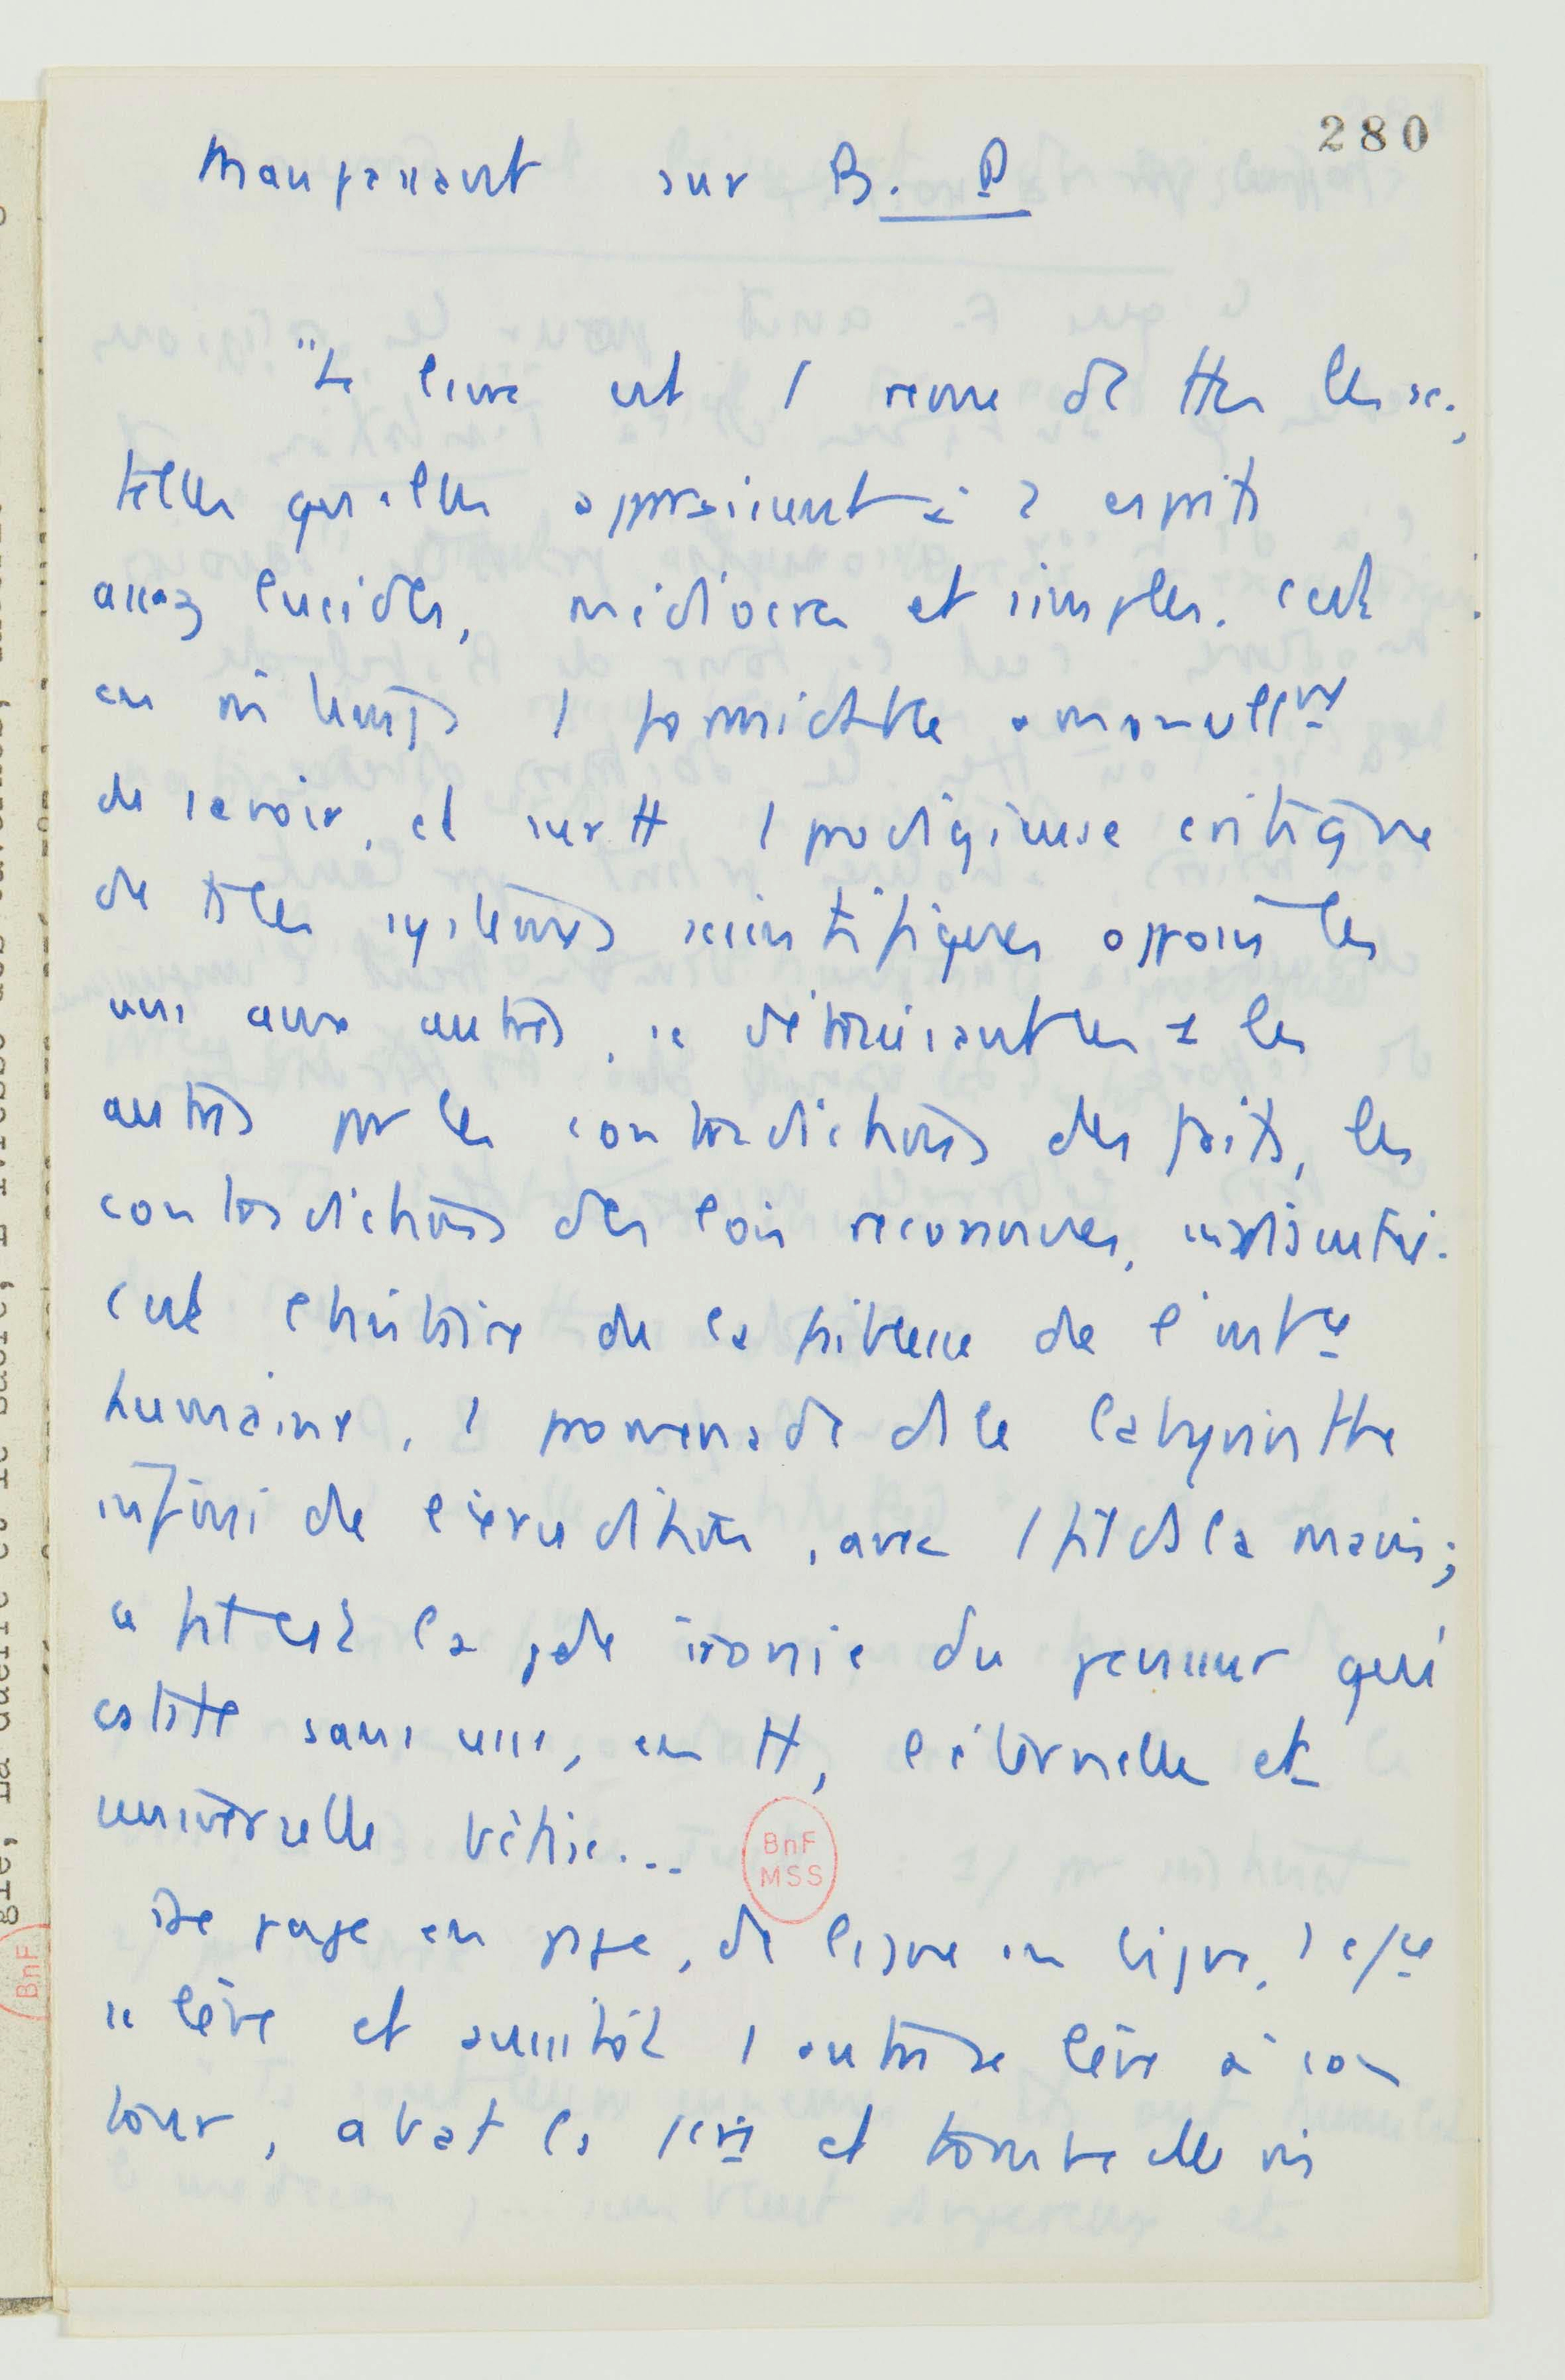 280
Maupassant sur B. P
"Le livre est 1 revue de ttes les sc.,
telles qu'elles apparaissent à 2 esprits
assez lucides, médiocres et simples. C'est
en m temps 1 formidable amoncellnt
de savoir, et surtt 1 prodigieuse critique
de ts les systèmes scientifiques opposés les
uns aux autres, se détruisant les 1 les
autres par les contradictions des faits, les
contradictions des lois reconnues, indiscutées.
C'est l'histoire de la faiblesse de l'intce
humaine, 1 promenade ds le labyrinthe
infini de l'érudition, avec 1 fil ds la main;
ce fil c'est la gde ironie du penseur qui
cstte sans cesse, en tt, l'éternelle et
universelle bêtise...
De page en page, de ligne en ligne, 1
se lève et aussitôt 1 autre se lève à son
tour, abat la 1ère et tombe elle m
BnF
MSS
BnF